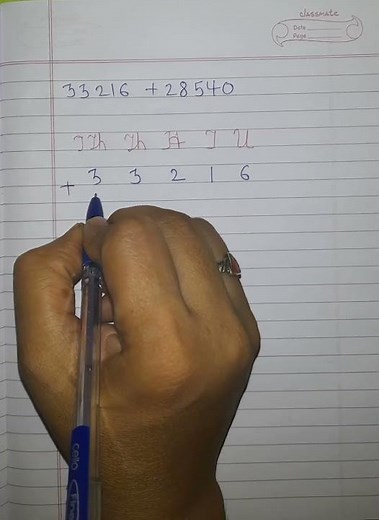 classmate
Date
Page
33216 + 28540
TTh Th H T U
+ 3 3 2 1 6
cello